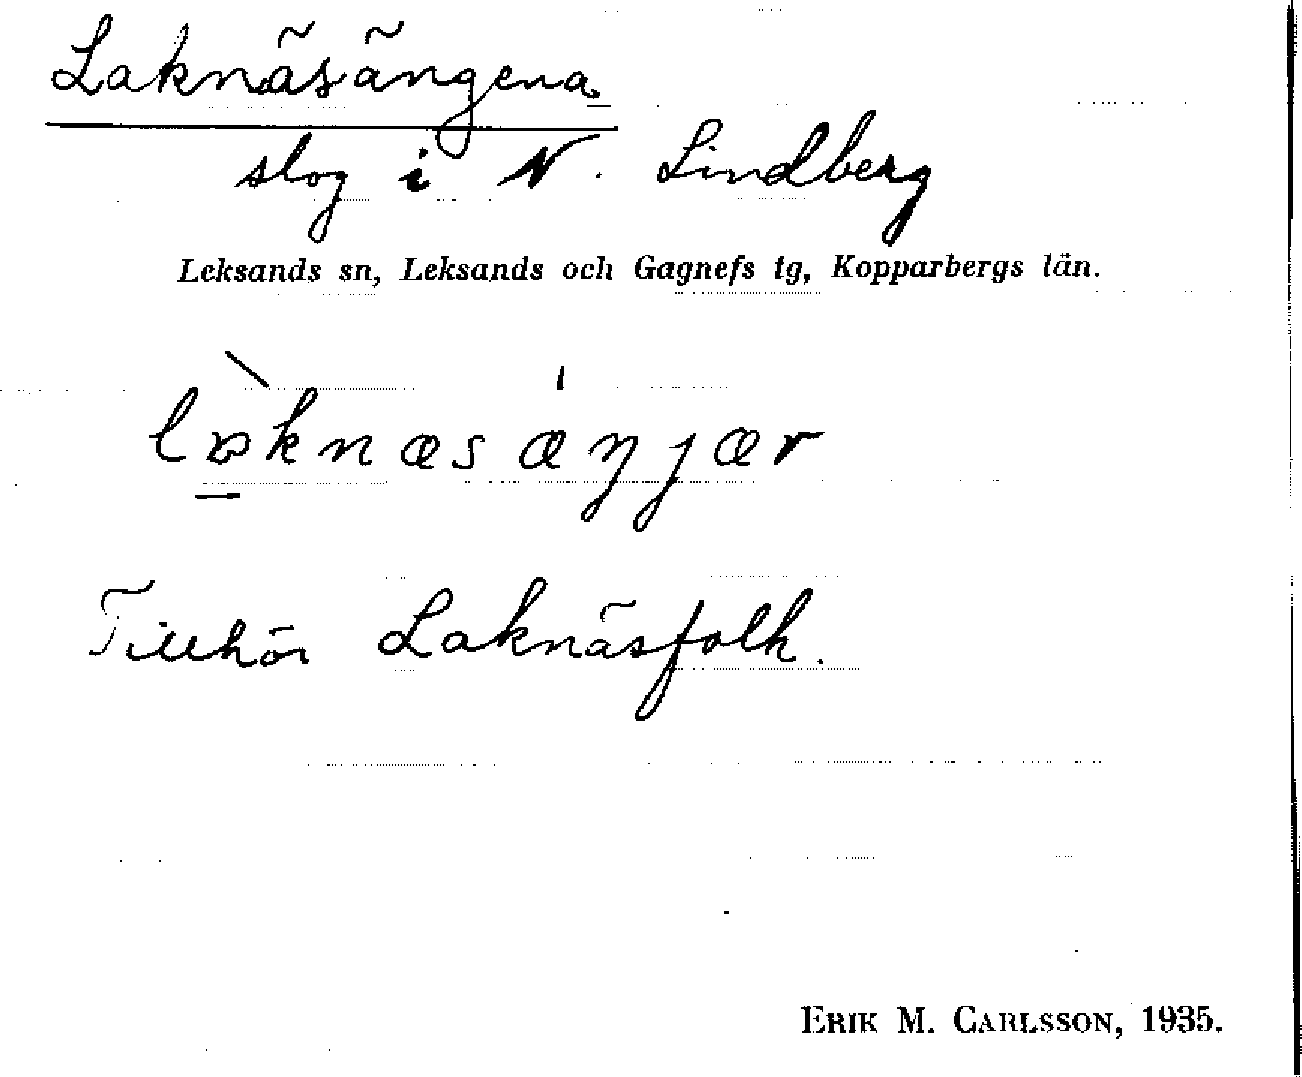 Laknäsängena
slog i N. Lindberg
Leksands sn, Leksands och Gagnefs tg, Kopparbergs län.
Tillhör Laknäsfolk.
ERIK M. CARLSSON, 1935.